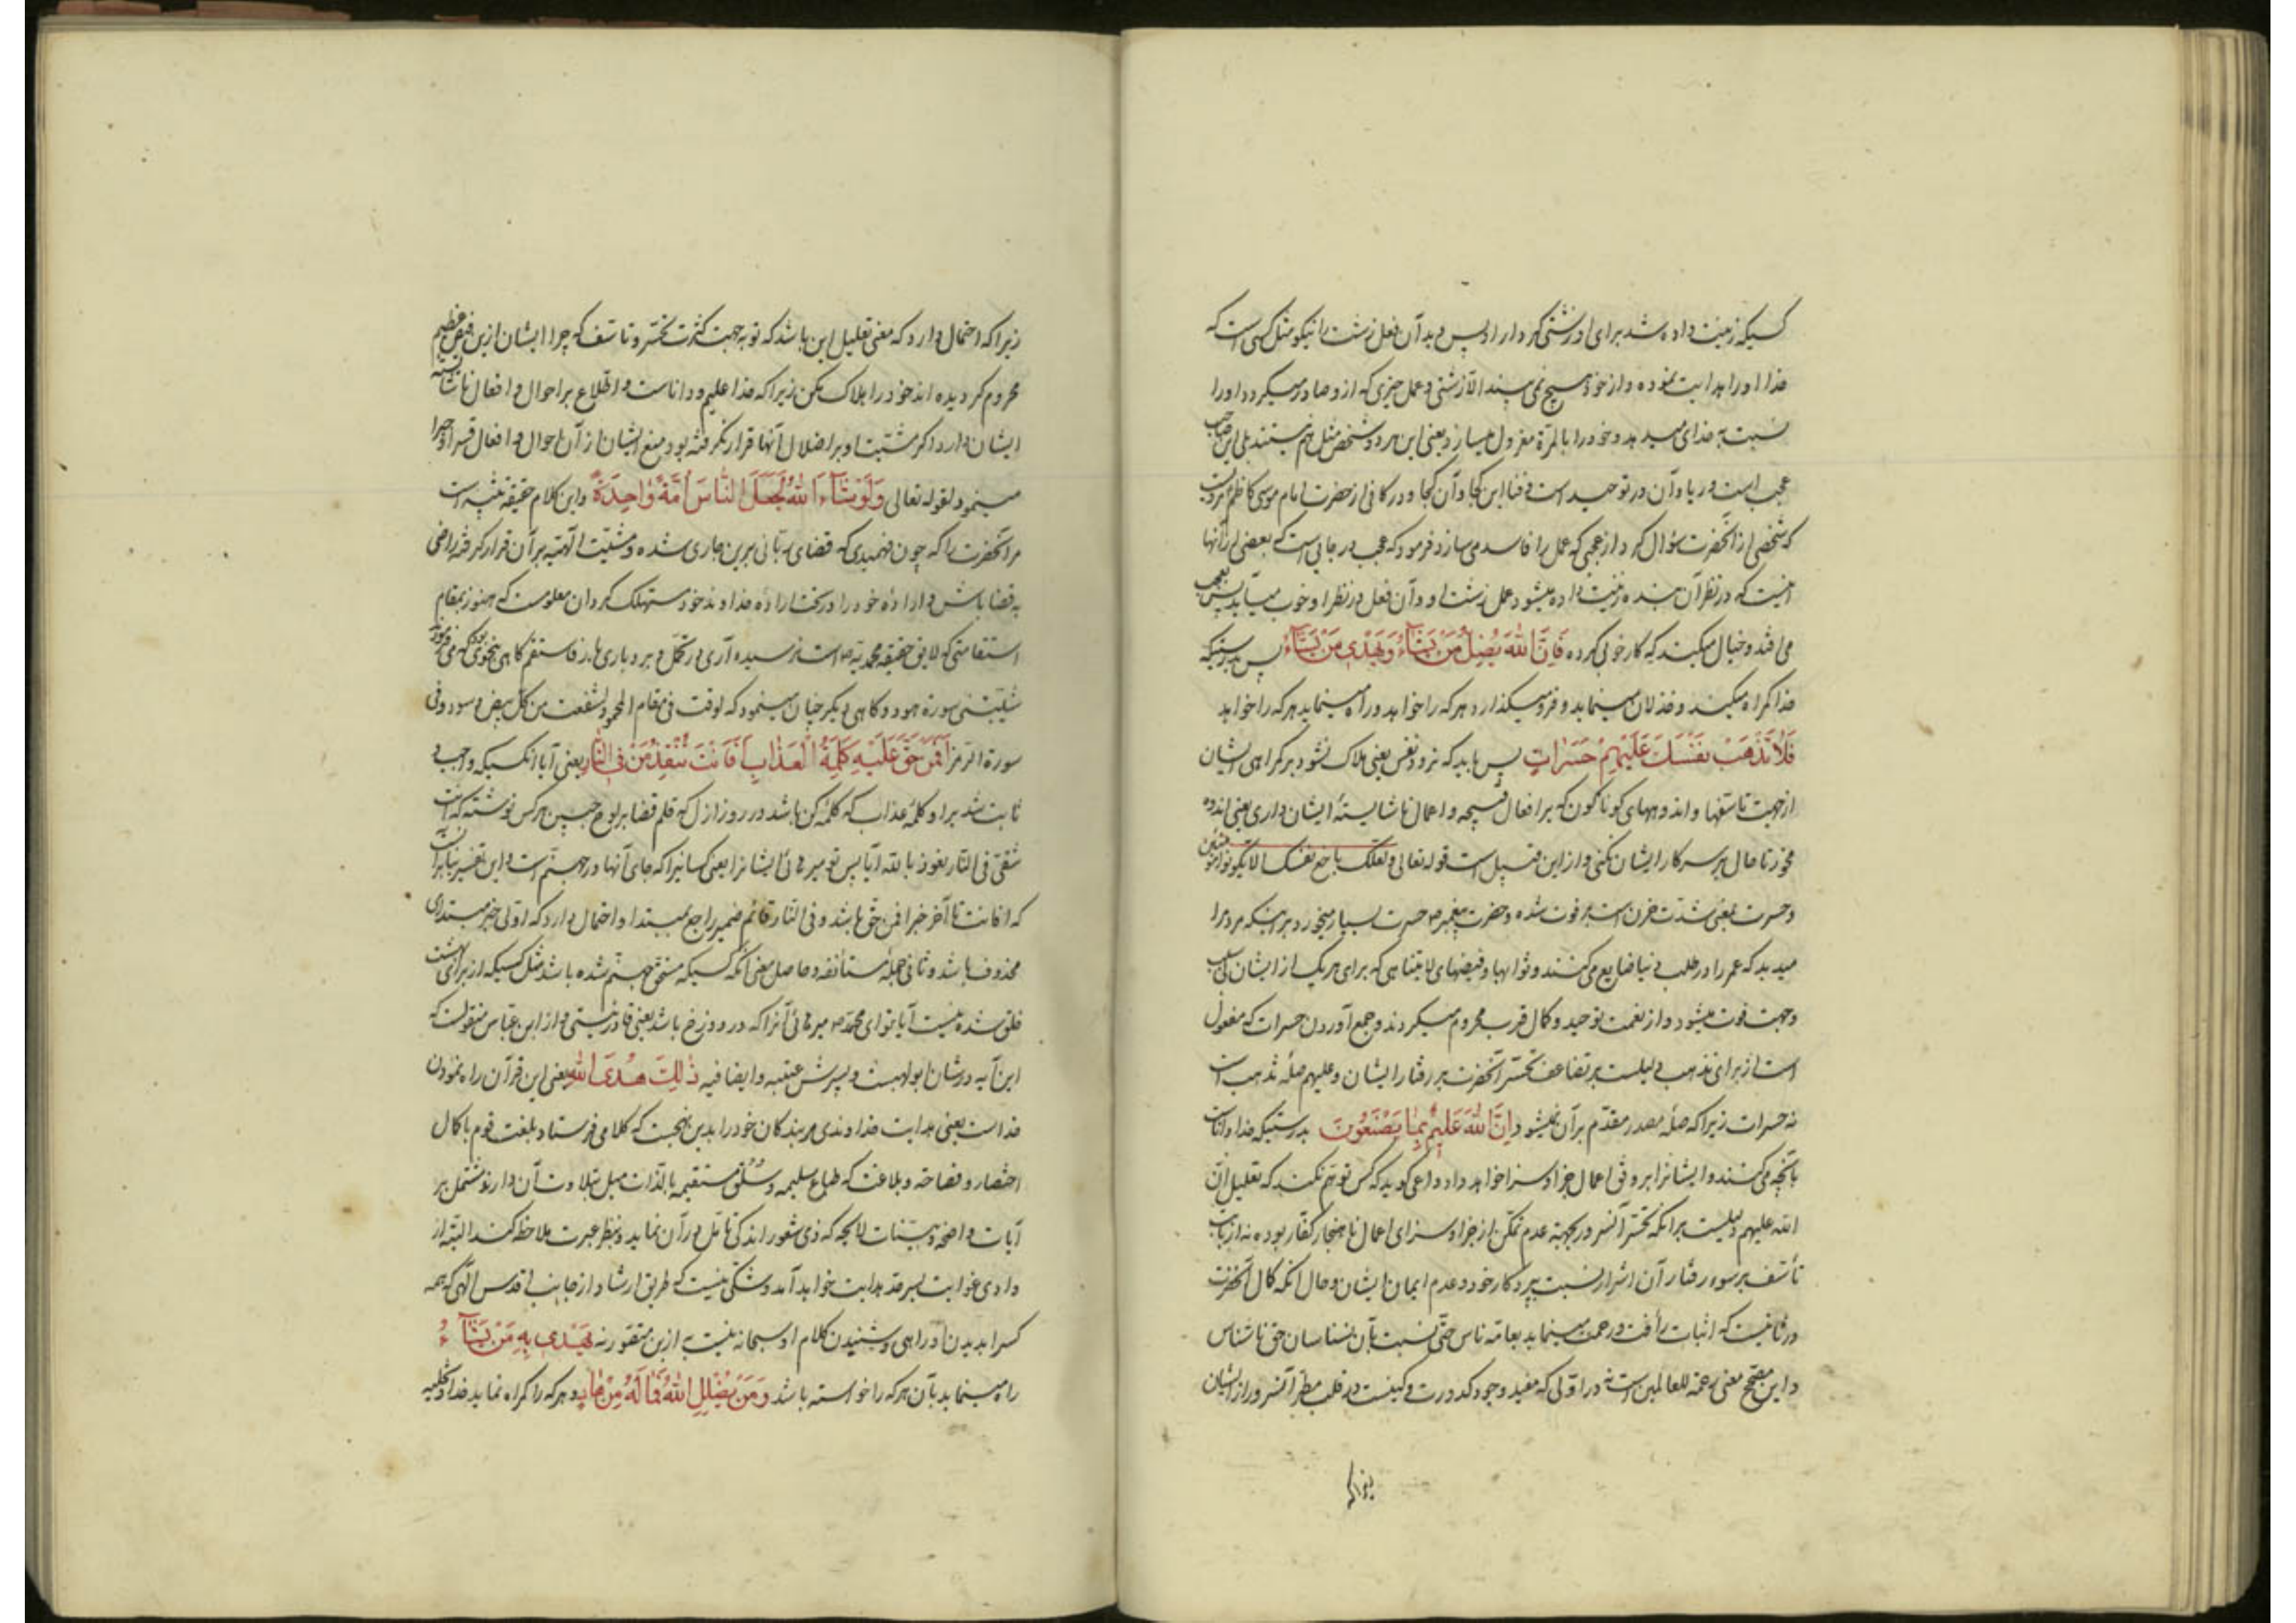 کسیکه زینت داده شد برای او زشتی کردار او پس دید آن فعل زشت را نیکو مثل کسی است که
خدا او را هدایت نموده و از خود هیچ نمی بیند الا زشتی و عمل خیری که از و صادر میگردد او را
نسبت به خدای میدهد و خود را بالمرة معزول میسازد یعنی این هر دو شخص مثل هم نیستند بلی این صاحب
عجب است و ریا و آن در توحید است و فنا این کجا و آن کجا و در کافی از حضرت امام موسی کاظم مرویست
که شخصی از آنحضرت سؤال کرد از عجبی که عمل را فاسد می سازد فرمود که عجب درجاتی است که بعضی از آنها
اینست که در نظر آن بنده زینت داده میشود عمل زشت او و آن فعل در نظر او خوب میآید پس بعجب
می افتد و خیال میکند که کار خوبی کرده فَاِنَّ اللهَ يُضِلُّ مَنْ يَشَآءُ وَيَهْدي مَنْ يَشَآءُ پس بدرستیکه
خدا گمراه میکند و خذلان مینماید و فرو میگذارد هر که را خواهد و راه مینماید هر که را خواهد
فَلاٰ تَذْهَبْ نَفْسُكَ عَلَيْهِمْ حَسَرٰاتٍ پس باید که نرود نفس یعنی هلاک نشود بر گمراهی ایشان
از جهت تاسفها و اندوههای گوناگون که بر افعال قبیحه و اعمال ناشایسته ایشان داری یعنی اندوه
مخور تا حال بر سر کار ایشان نکنی و از این قبیل است قوله تعالی و لعلک باخع نفسک الا یکونوا مؤمنین
و حسرت بمعنی شدت حزن است بر فوت شده و حضرت پیغمبر ص حسرت بسیار میخورد بر اینکه مردم را
میدید که عمر را در طلب دنیا ضایع می کنند و ثوابها و فیضهای لایتناهی که برای هر یک از ایشان بی سبب
و جهت فوت میشود و از نعمت توحید و کمال قرب محروم میگردند و جمع آوردن حسرات که مفعول
است از برای تذهب دلیلست بر تضاعف تحسر آنحضرت بر رفتار ایشان و علیهم صله تذهب است
نه حسرات زیرا که صله مصدر مقدم بر آن نمیشود اِنَّ اللهَ عَليمٌ بِمٰا يَصْنَعُونَ بدرستیکه خدا داناست
بآنچه می کنند و ایشانرا بر وفق اعمال جزا و سزا خواهد داد داعی گوید که کس توهم نکند که تعلیل ان
الله علیهم دلیلست بر آنکه تحسر آنسرور بجهة عدم تمکن از جزا و سزای اعمال ناهنجار کفار بوده نه از بابت
تأسف بر سوء رفتار آن اشرار نسبت بپروردکار خود و عدم ایمان ایشان و حال آنکه کمال آنحضرت
در ثانیست که اثبات رأفت و رحمت مینماید بعامه ناس حتی نسبت بآن نسناسان حق ناشناس
و این مصحح معنی رحمة للعالمین است نه در اولی که مفید وجود کدورت و کینست در قلب مطهر آنسرور از ایشان
زیرا که
زیرا که احتمال دارد که معنی تعلیل این باشد که تو بجهت کثرت تحسر و تاسف که چرا ایشان از این فیض عظیم
محروم گردیده اند خود را هلاک مکن زیرا که خدا علیم و داناست و اطلاع بر احوال و افعال ناشایسته
ایشان دارد اگر مشیت او بر اضلال آنها قرار نگرفته بود منع ایشان از آن احوال و افعال قسرا و جبرا
مینمود لقوله تعالی وَلَوْ شَآءَ اللهُ لَجَعَلَ النّٰاسَ اُمَّةً وٰاحِدَةً و این کلام حقیقة تنبیه است
مر آنحضرت را که چون فهمیدی که قضای ربانی برین جاری شده و مشیت الهیه بر آن قرار گرفته راضی
به قضا باش و اراده خود را در تحت اراده خداوند خود مستهلک گردان معلومست که هنوز بمقام
استقامتی که لایق حقیقه محمدیه ص است نرسیده آری در تحمل و بردباری بار فاستقم گاهی بنحوی بود که می فرمود
شیبتنی سورة هود و گاهی دیگر چنان مینمود که لوقت فی مقام المحمود لشفعت من کل بیض و سود و فی
سورة الزمر اَفَمَنْ حَقَّ عَلَيْهِ كَلِمَةُ الْعَذٰابِ اَفَاَنْتَ تُنْقِذُ مَنْ فِي النّٰارِ یعنی آیا آنکسیکه واجب و
ثابت شد بر او کلمه عذاب که کلمه کن باشد در روز ازل که قلم قضا بر لوح جبین هر کس نوشته که انت
شقی فی النار نعوذ بالله آیا پس تو میرهانی ایشانرا یعنی کسانیرا که جای آنها در جهنم است و این تفسیر بنابر آنست
که افانت تا آخر خبر افمن حق باشد و فی النار قائم ضمیر راجع بمبتدا و احتمال دارد که اولی خبر مبتدای
محذوف باشد و ثانی جمله مستأنفه و حاصل معنی آنکه کسیکه مستحق جهنم شده باشد مثل کسیکه از برای بهشت
خلق شده نیست آیا تو ای محمد ص میرهانی آنرا که در دوزخ باشد یعنی قادر نیستی و از ابن عباس منقولست که
این آیه در شان ابولهبست و پسرش عتبه و ایضا فیه ذٰلِكَ هُدَى اللهِ یعنی این قرآن راه نمودن
خداست یعنی هدایت خداوندی مر بندکان خود را بدین نهجست که کلامی فرستاد بلغت قوم با کمال
اختصار و فصاحة و بلاغت که طباع سلیمه و سلق مستقیمه بالذات میل بتلاوت آن دارند مشتمل بر
آیات واضحه و بینات لایحه که ذی شعور اندکی تامل در آن نماید و بنظر عبرت ملاحظه کند البته از
وادی غوایت بسرحد هدایت خواهد آمد و شکی نیست که طریق ارشاد از جانب اقدس الهی که همه
کس را بدیدن او راهی و شنیدن کلام او سبحانه نیست به ازین متصور نه يَهْدي بِهِ مَنْ يَشٰآءُ
راه مینماید بآن هر که را خواسته باشد وَمَنْ يُضْلِلِ اللهُ فَمٰا لَهُ مِنْ هٰادٍ و هر که را گمراه نماید خدا و تخلیه